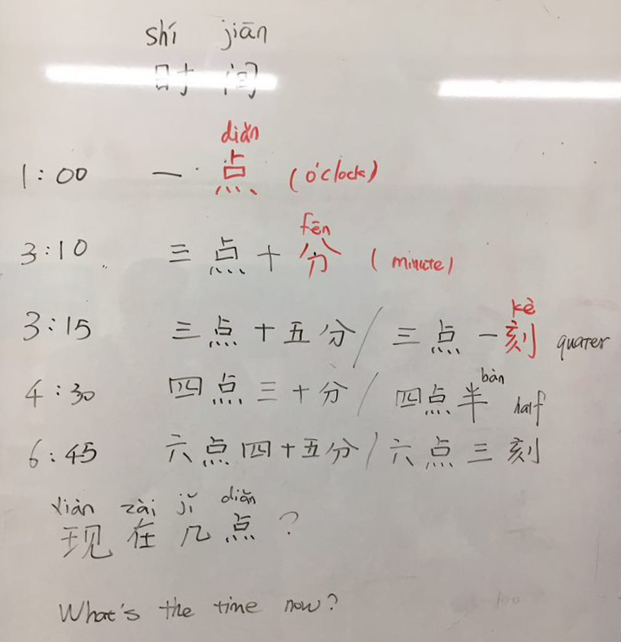 shí jiān
时间
diǎn
1:00 一 点 (o'clock)
fēn
3:10 三点十分 (minute)
kè
3:15 三点十五分/三点一刻 quarer
bàn
4:30 四点三十分/四点半 half
6:45 六点四十五分/六点三刻
xiàn zài jǐ diǎn
现在几点?
What's the time now?